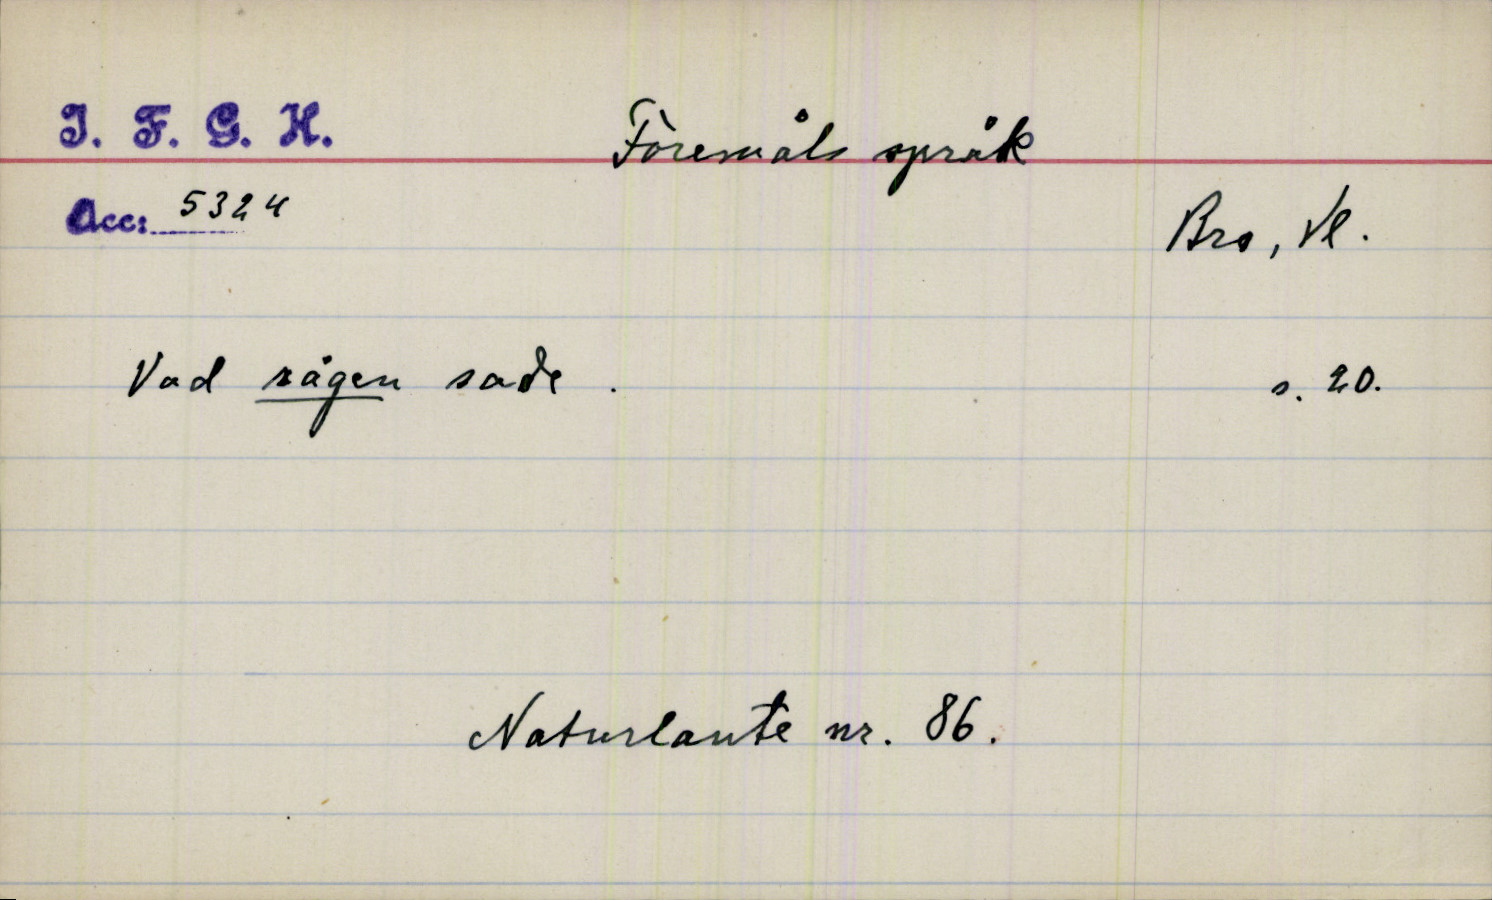 I. F. G. H.
Föremåls språk
Acc: 5324
Bro, Vl.
Vad rågen sade. s. 20.
Naturlaute nr. 86.